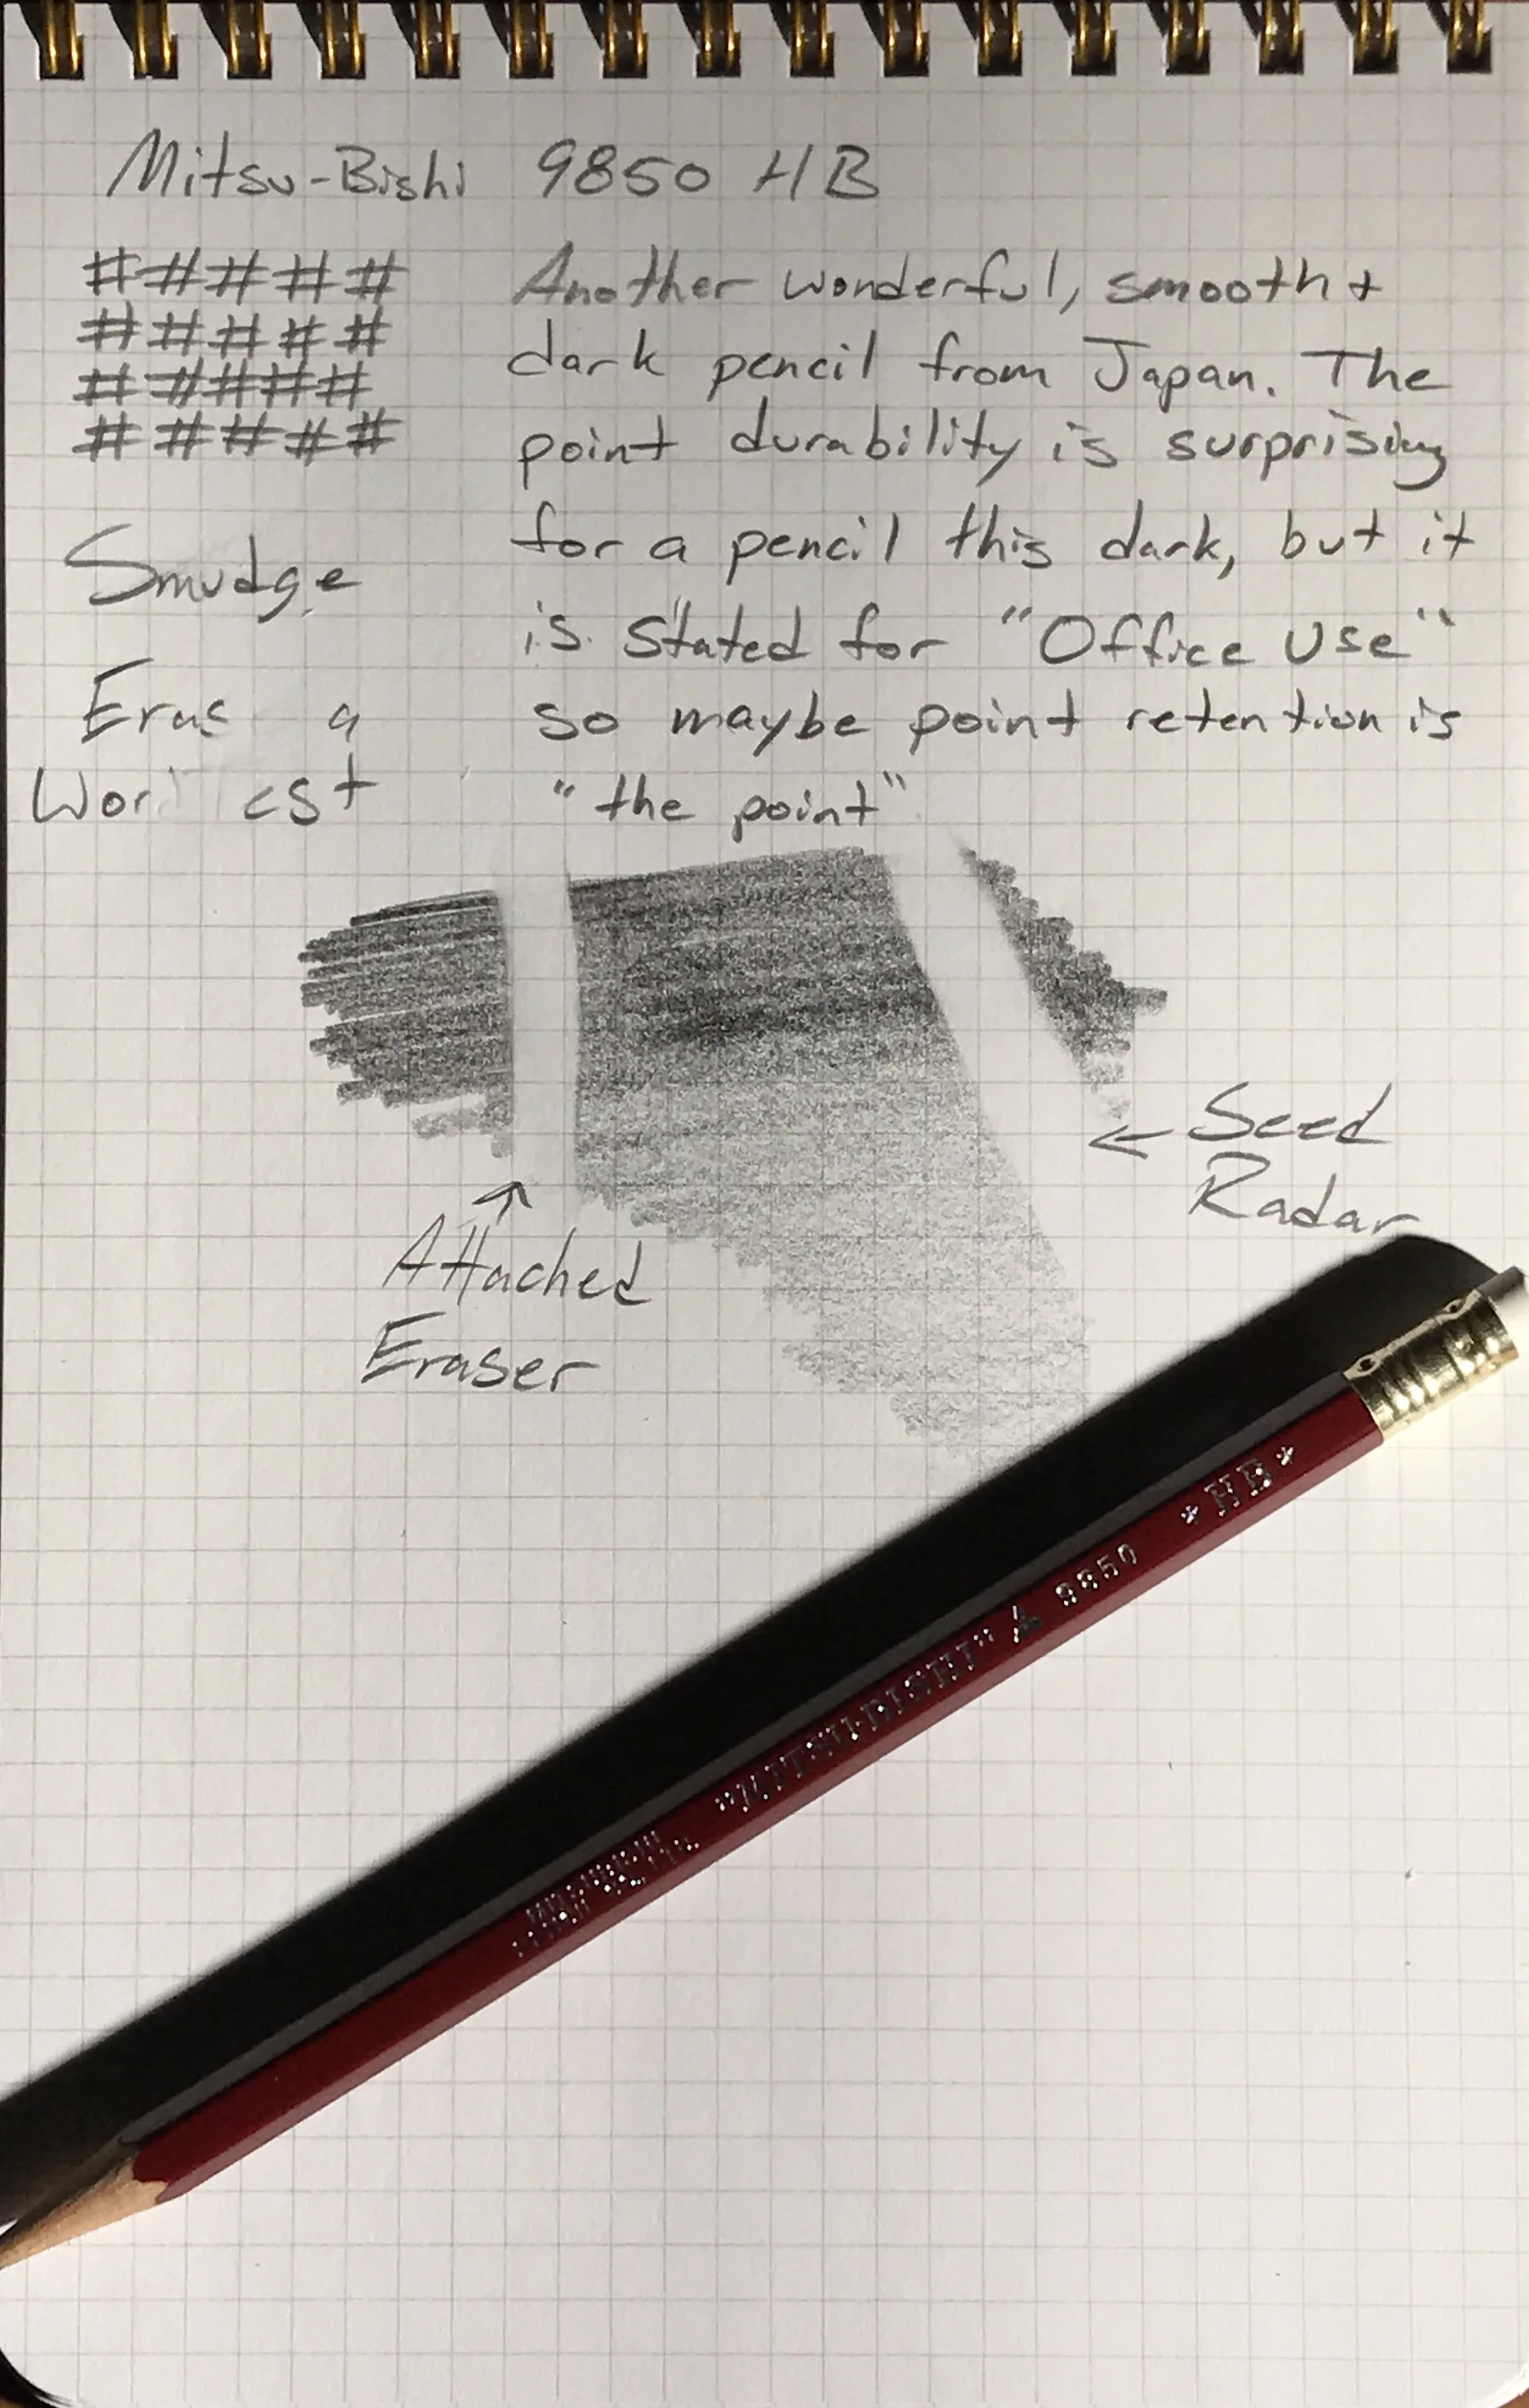 Mitsu-Bishi 9850 HB
# # # # #
# # # # #
# # # # #
# # # # #
Another wonderful, smooth +
dark pencil from Japan. The
point durability is surprising
for a pencil this dark, but it
is stated for "Office Use"
so maybe point retention is
"the point"
Smudge
Eras g
Wor est
← Seed
Radar
↑
Attached
Eraser
"MITSU-BISHI" 9850 *HB*